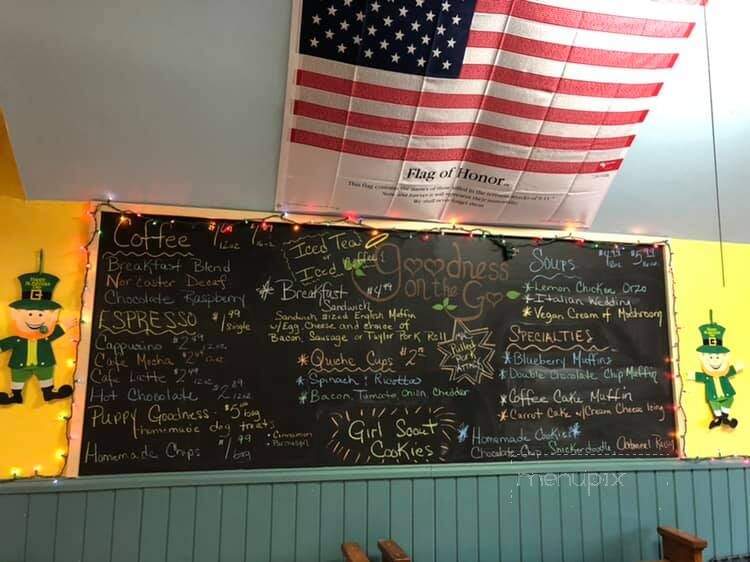 Flag of Honor
This flag contains the names of those killed in the terrorist attacks of 9-11.
Now and forever it will represent their immortality.
We shall never forget them.
Coffee
12oz
16oz
Breakfast Blend
Nor'Easter Decaf
Chocolate Raspberry
ESPRESSO $1.99
single
Cappucino $2.49 12oz
Cafe Mocha $2.49 12oz
Cafe Latte $2.49 12oz
Hot Chocolate 12oz
Puppy Goodness $5 bag
homemade dog treats
Homemade Chips $1.99 bag
• Cinnamon
• Parmesan
Iced Tea
or Iced Coffee!
Goodness
on the Go
* Breakfast $4.99
Sandwich
Sandwich sized English Muffin
w/Egg, Cheese and choice of
Bacon, Sausage or Taylor Pork Roll
* Quiche Cups
* Spinach & Ricotta
* Bacon, Tomato Onion Cheddar
Pulled
Pork
Girl Scout
Cookies
Soups $4.99 $5.99
12oz
16oz
* Lemon Chicken Orzo
* Italian Wedding
* Vegan Cream of Mushroom
SPECIALTIES
* Blueberry Muffins
* Double Chocolate Chip Muffin
* Coffee Cake Muffin
* Carrot Cake w/Cream Cheese Icing
* Homemade Cookies *
Chocolate Chip, Snickerdoodle, Oatmeal Raisin
menupix